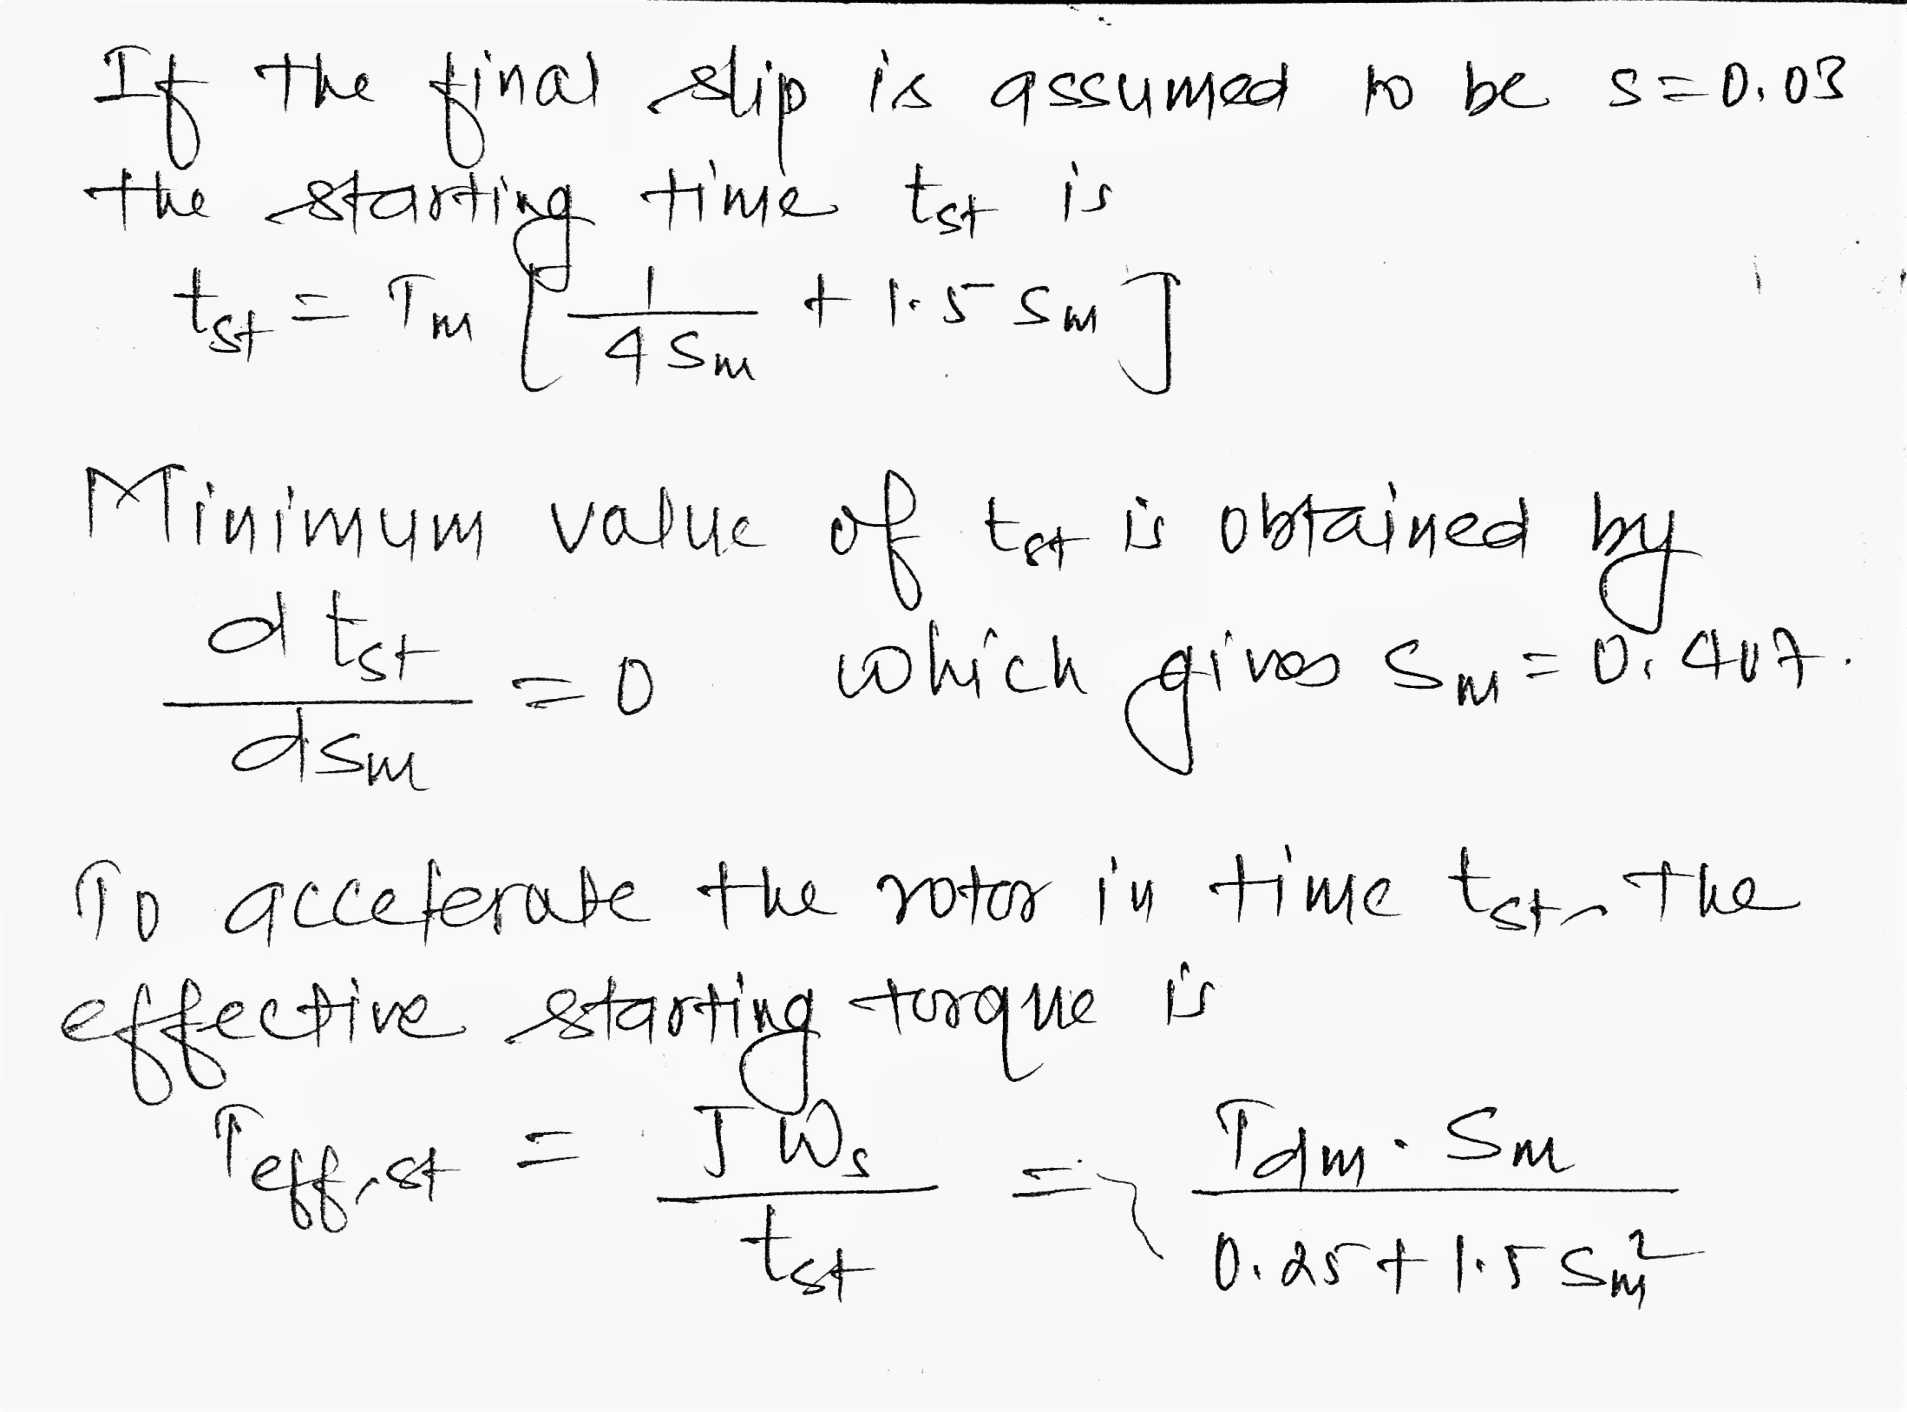 If the final slip is assumed to be s=0.03
the starting time tst is
tst = Tm [ 1/4Sm + 1.5 Sm ]
Minimum value of tst is obtained by
d tst / dsm = 0 which gives Sm = 0.407.
To accelerate the rotor in time tst, the
effective starting torque is
Teff,st = J Ws / tst = Tdm . Sm / 0.25 + 1.5 Sm²